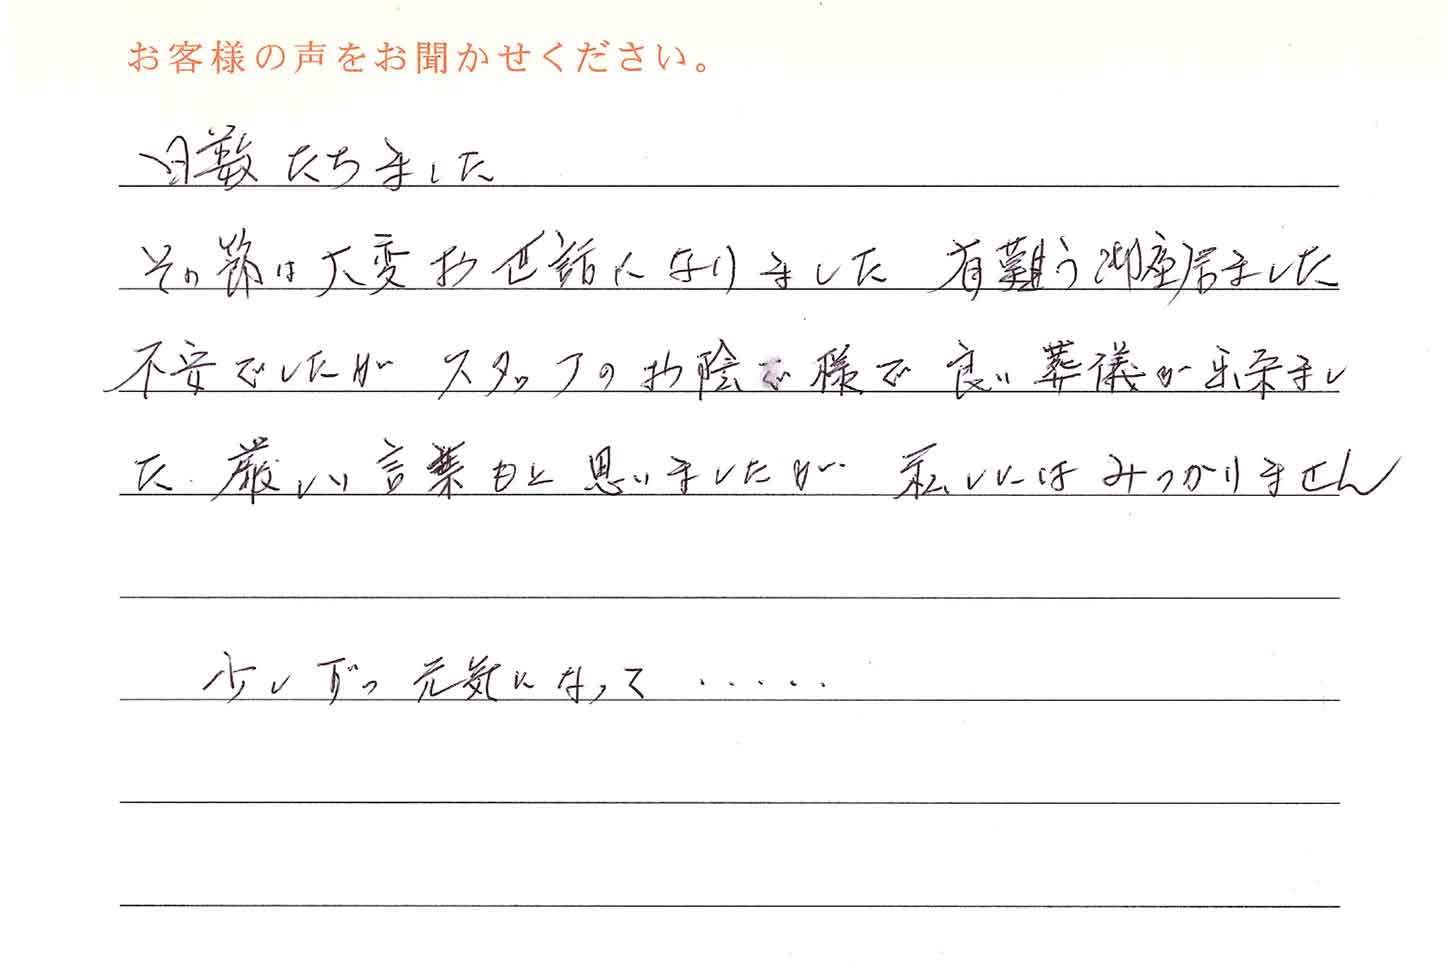 お客様の声をお聞かせください。
日数たちました
その節は大変お世話になりました 有難う御座居ました
不安でしたが スタッフのお陰で様で 良い葬儀が出来まし
た 厳しい言葉もと思いましたが 私しにはみつかりません
少しずつ元気になって ・・・・・